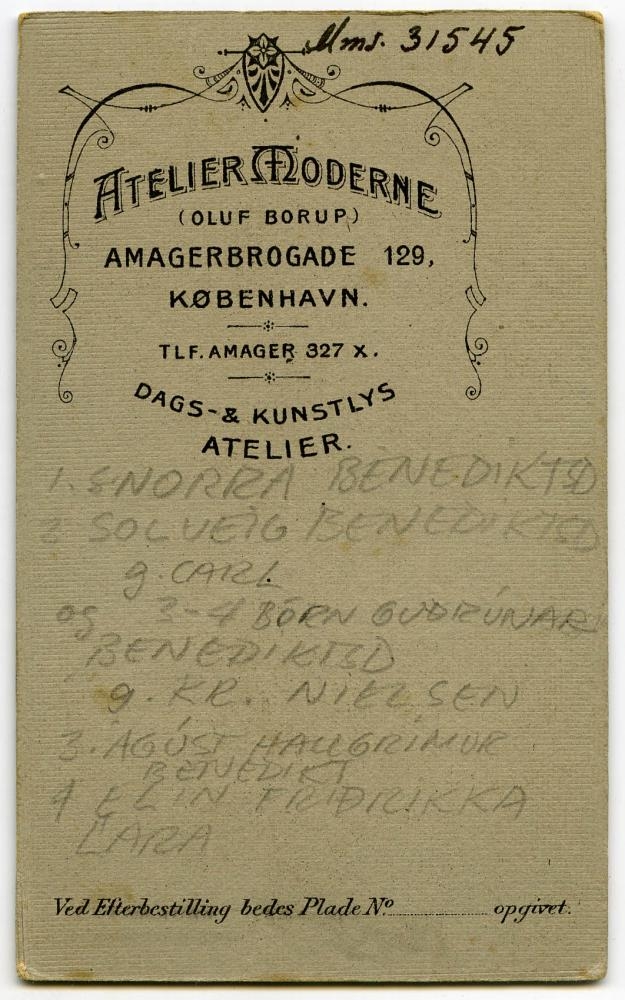 Mms. 31545
ATELIER MODERNE
(OLUF BORUP)
AMAGERBROGADE 129,
KØBENHAVN.
TLF. AMAGER 327 X.
DAGS- & KUNSTLYS
ATELIER.
1. SNORRA BENEDIKTSD
2 SOLVEIG BENEDIKTSD
g. CARL
og 3-4 BÖRN GUÐRÚNAR
BENEDIKTSD
g. KR. NIELSEN
3. ÁGÚST HALLGRÍMUR
BENEDIKT
4 ELIN FRIÐRIKKA
LARA
Ved Efterbestilling bedes Plade No opgivet.